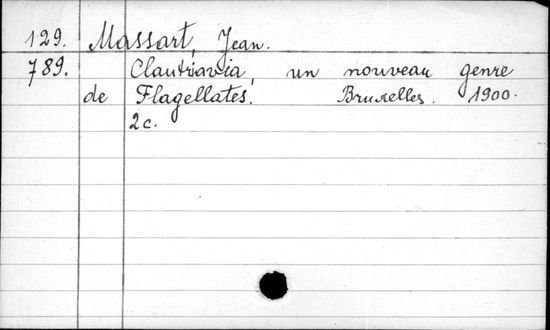 129. Massart, Jean.
789. Clautriavia, un nouveau genre
de Flagellates. Bruxelles. 1900.
2c.